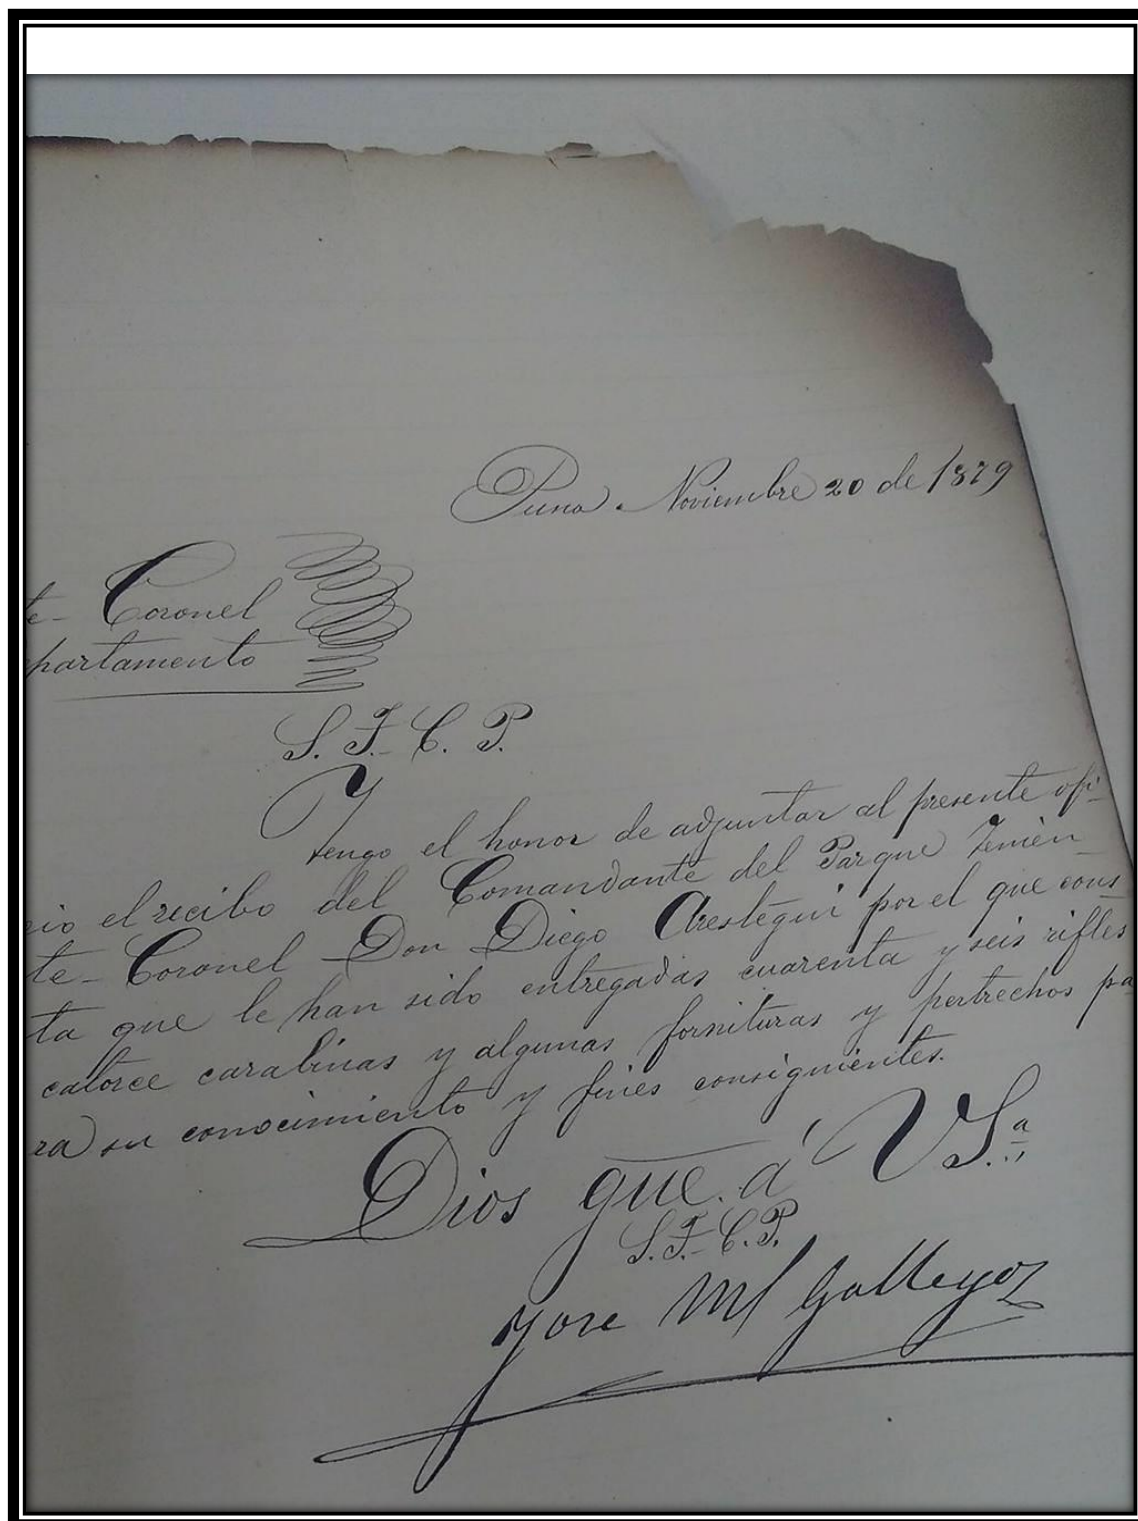 Puno. Noviembre 20 de 1879
te- Coronel
partamento
S. F. C. P.
Tengo el honor de adjuntar al presente ofi-
cio el recibo del Comandante del Parque Tenien-
te- Coronel Don Diego Arestegui por el que cons
ta que le han sido entregadas cuarenta y seis rifles
catorce carabinas y algunas fornituras y pertrechos pa-
ra su conocimiento y fines consiguientes.
Dios gue. á VSa
S. F. C. P.
Jose Ml Gallegos